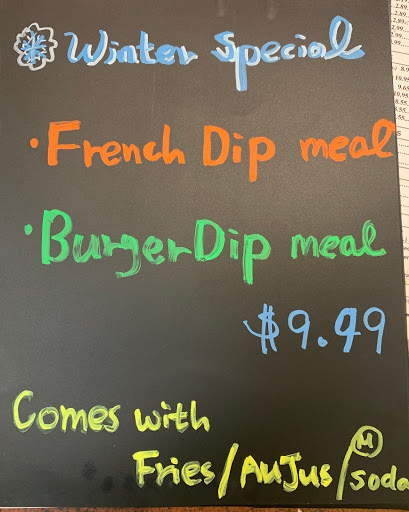 Winter Special
· French Dip meal
· Burger Dip meal
$9.49
Comes with
Fries/AuJus/Ⓜ soda